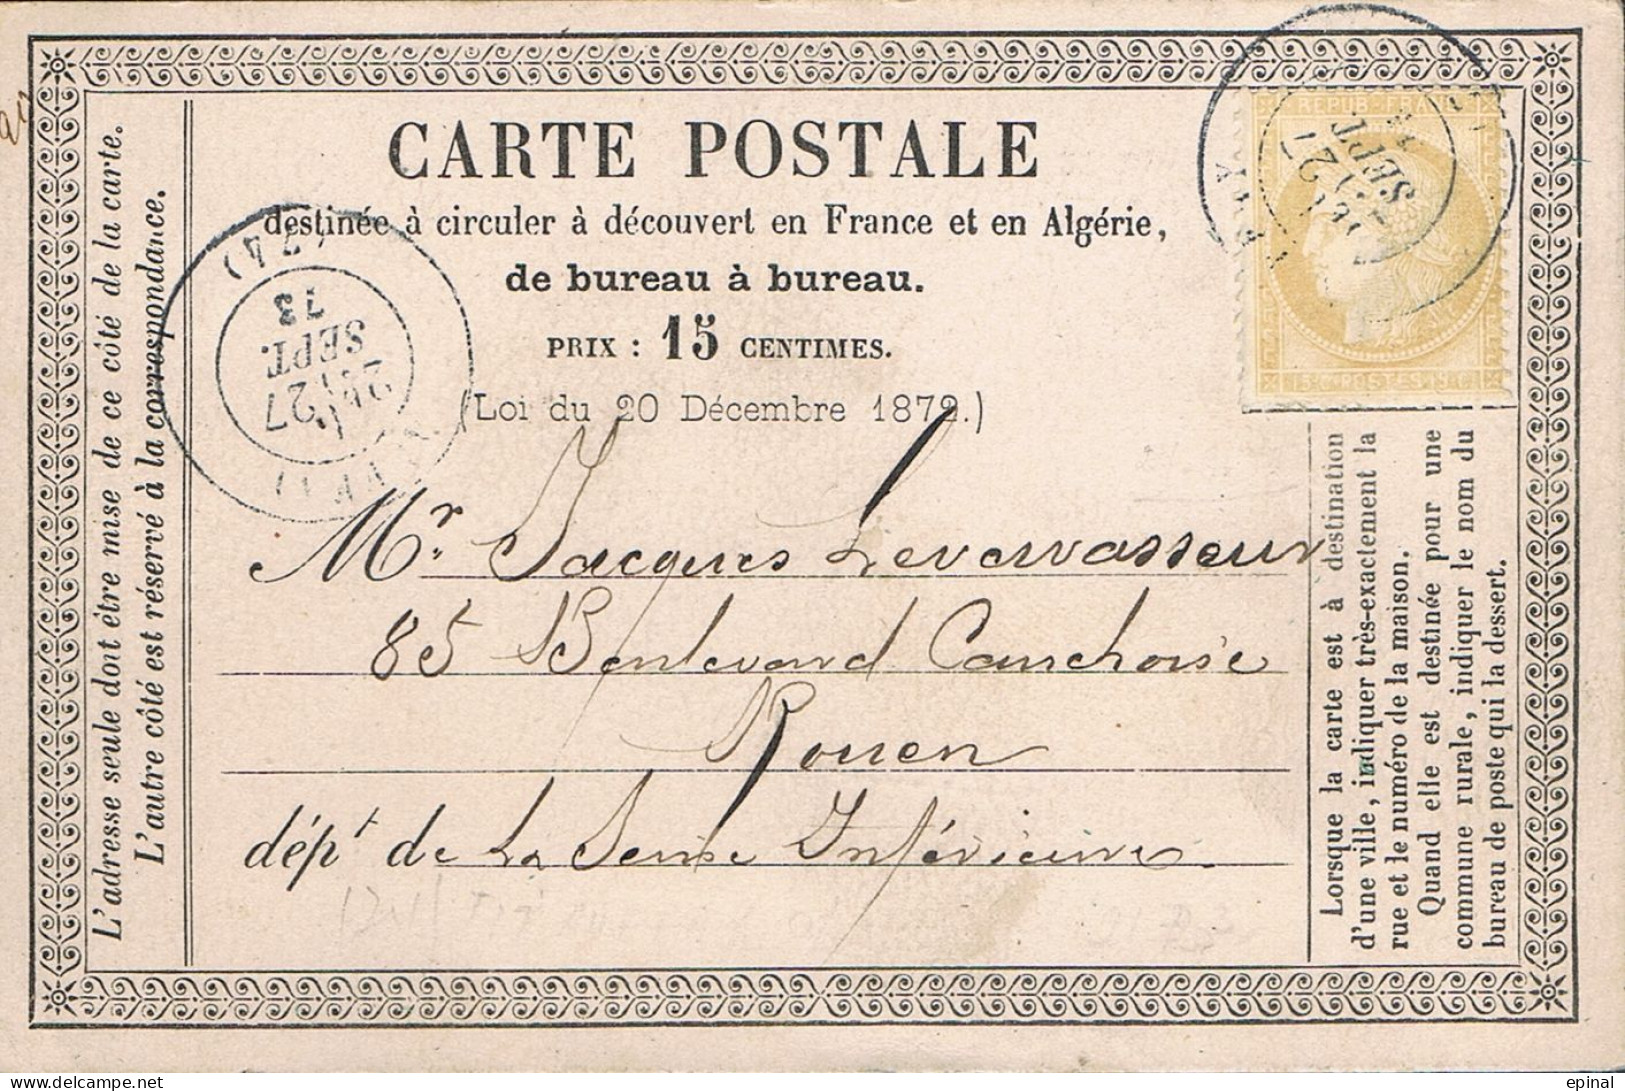 CARTE POSTALE
destinée à circuler à découvert en France et en Algérie,
de bureau à bureau.
PRIX : 15 CENTIMES.
(Loi du 20 Décembre 1872.)
Mr Jacques Levavasseur
85 Boulevard Cauchoise
Rouen
dépt de La Seine Inférieure
L'adresse seule doit être mise de ce côté de la carte.
L'autre côté est réservé à la correspondance.
Lorsque la carte est à destination
d'une ville, indiquer très-exactement la
rue et le numéro de la maison.
Quand elle est destinée pour une
commune rurale, indiquer le nom du
bureau de poste qui la dessert.
REPUB FRANC
15 c POSTES 15 c
27
SEPT.
73
(74)
27
SEPT.
epinal
Delcampe.net